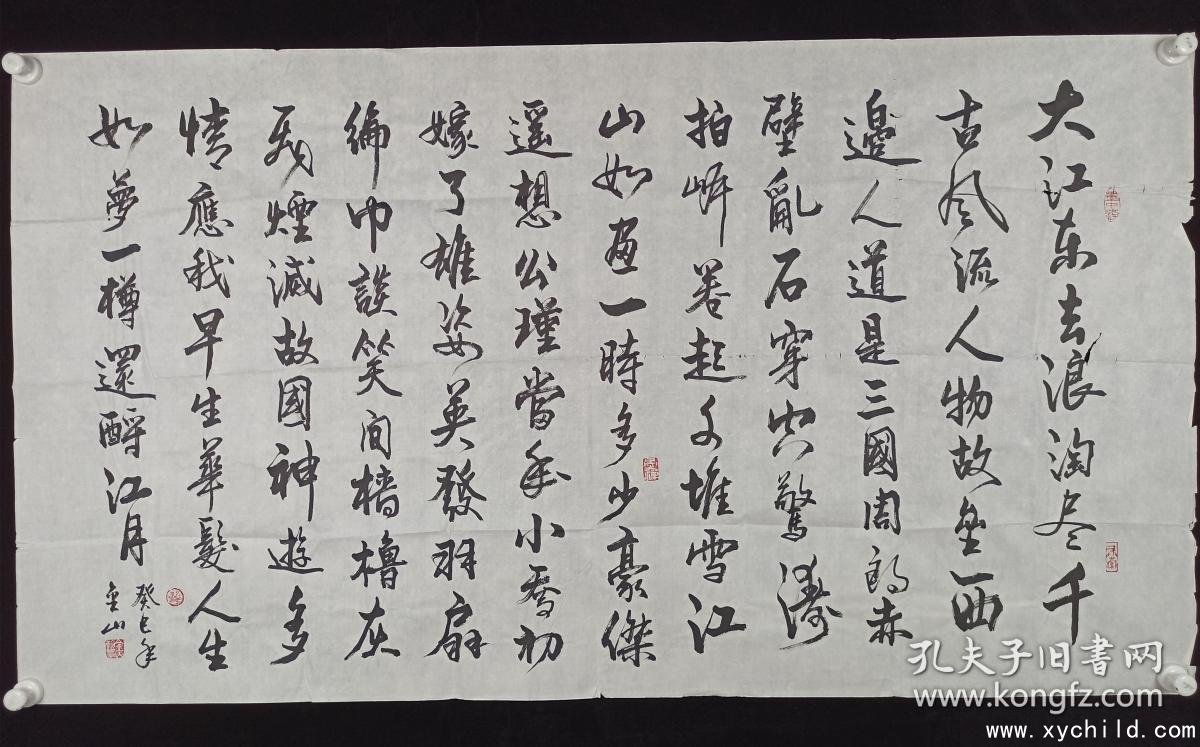 大江东去浪淘尽千
古风流人物故垒西
邊人道是三國周郎赤
壁亂石穿空驚濤
拍岸卷起千堆雪江
山如畫一時多少豪傑
遥想公瑾當年小喬初
嫁了雄姿英發羽扇
綸巾談笑间檣櫓灰
飛煙滅故國神遊多
情應我早生華髮人生
如夢一樽還酹江月
癸巳年
山
孔夫子旧书网
www.kongfz.com
www.xychild.com